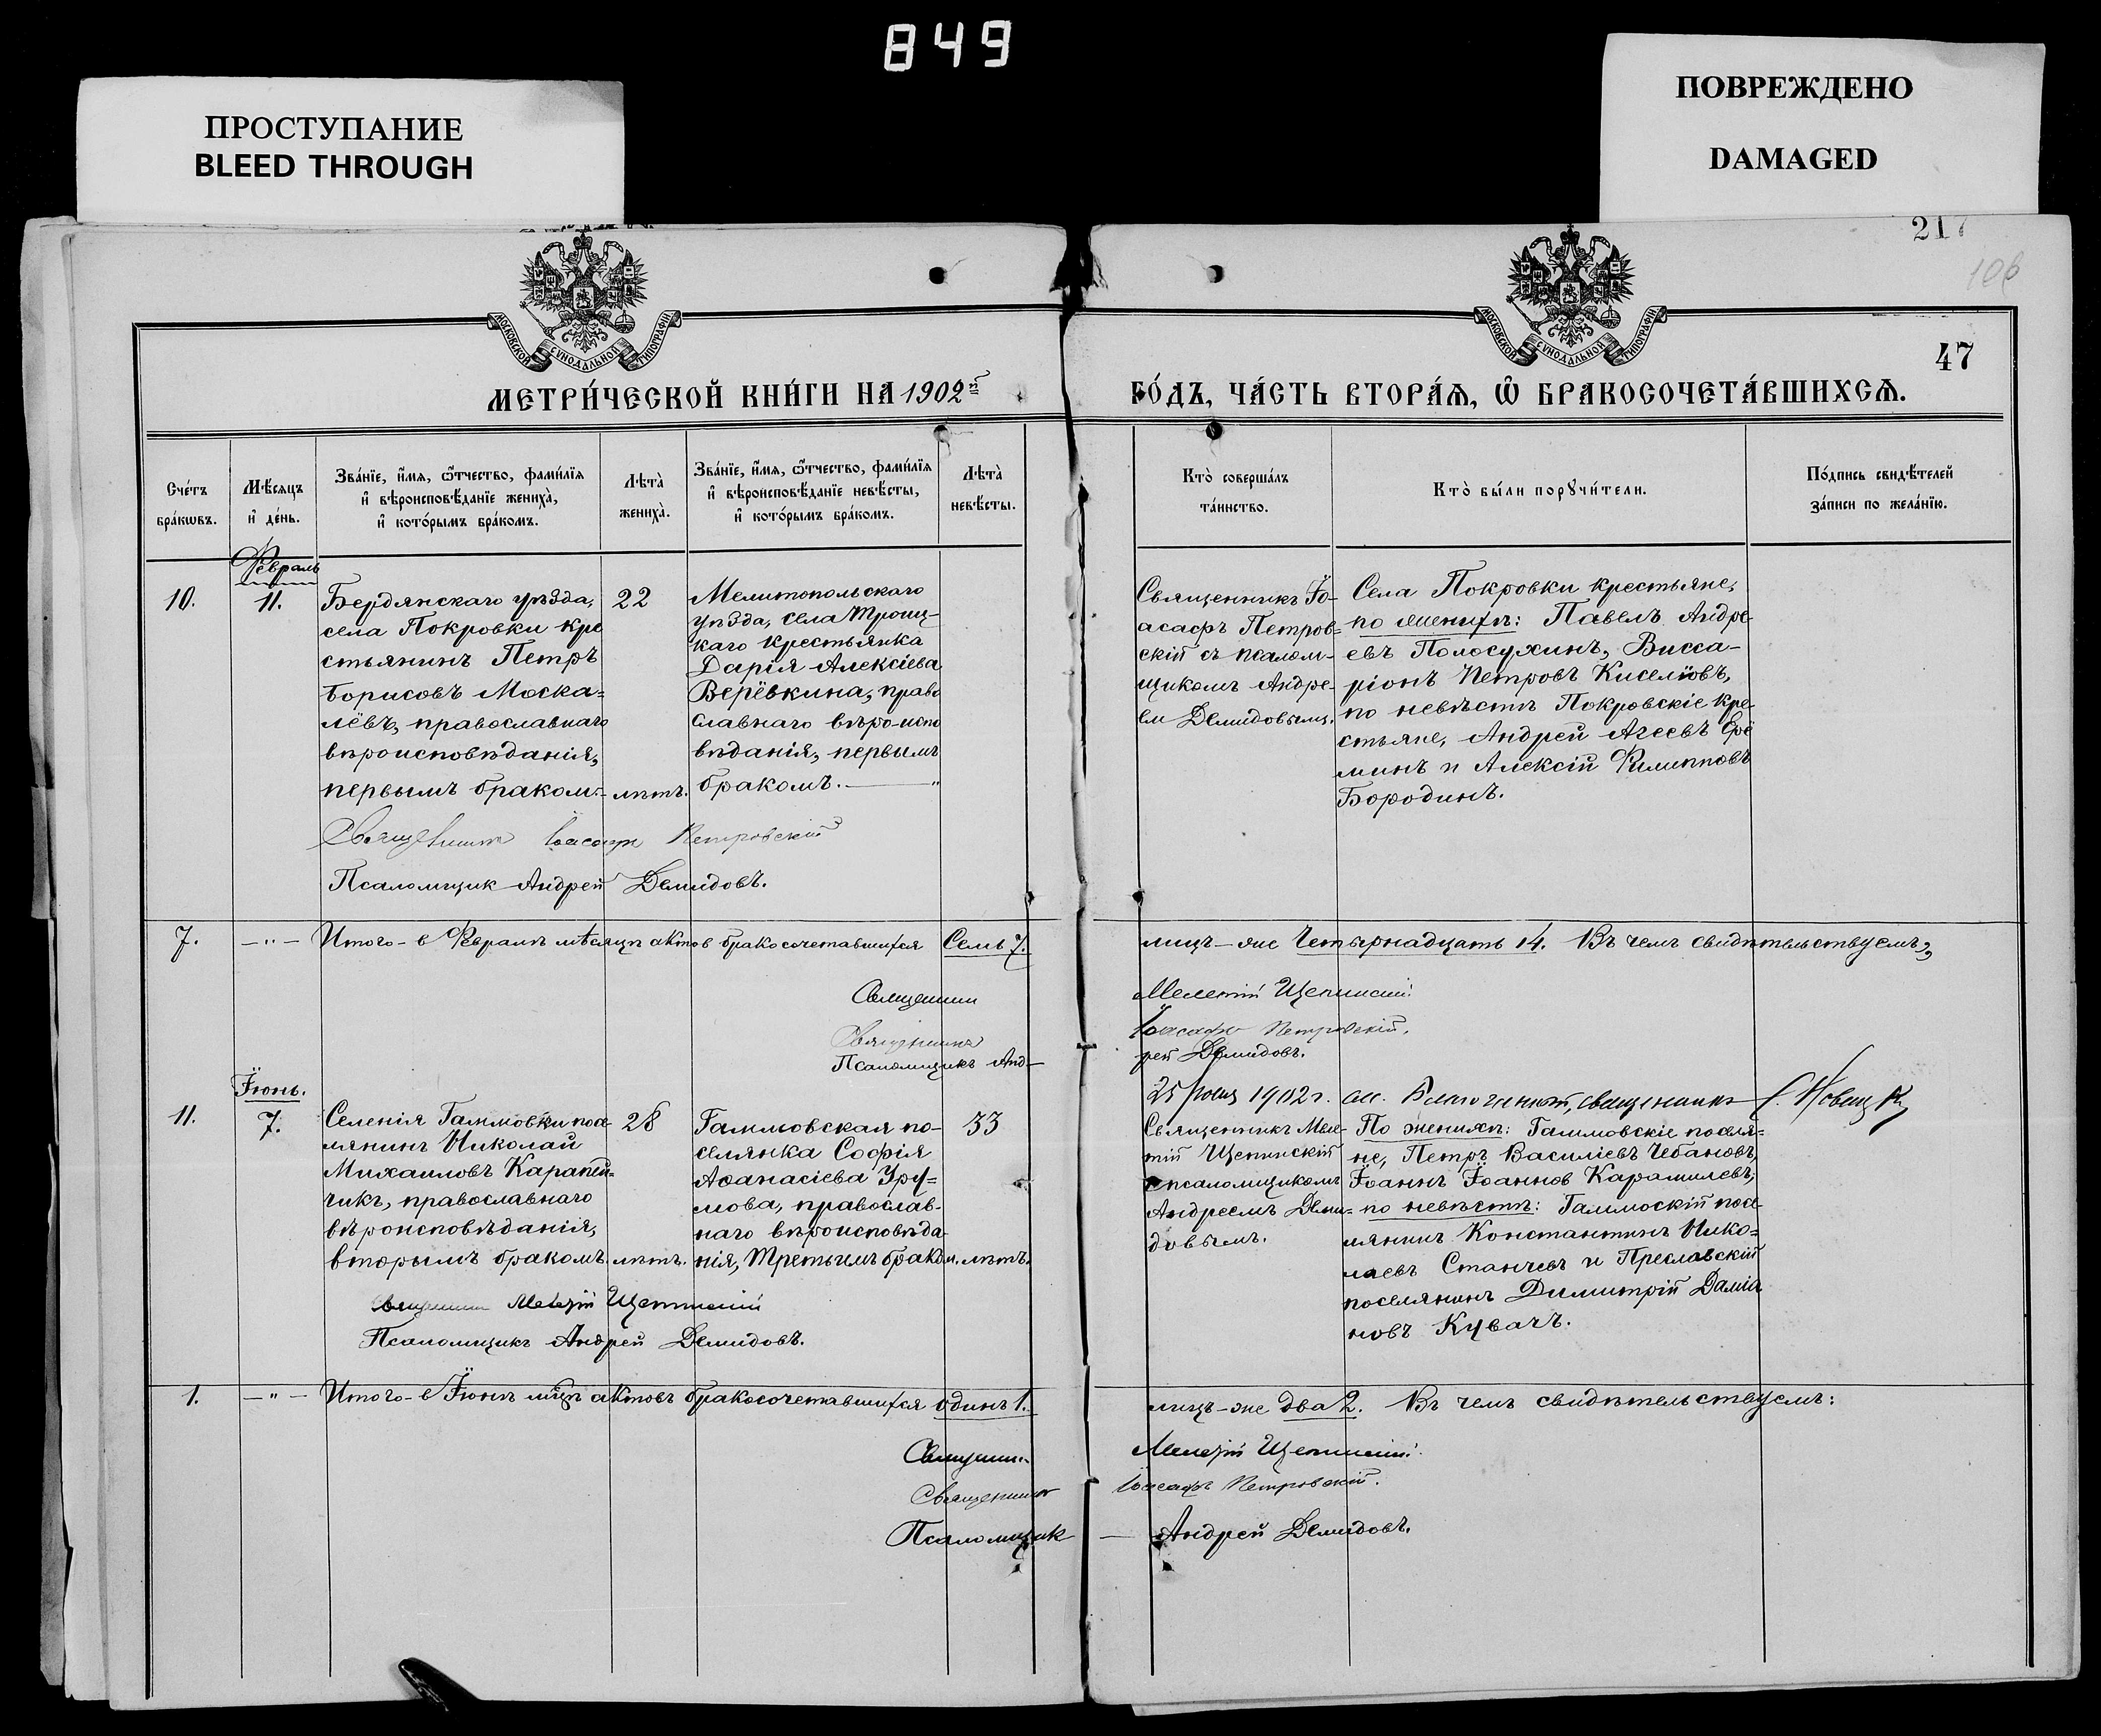 849
ПРОСТУПАНИЕ
BLEED THROUGH
ПОВРЕЖДЕНО
DAMAGED
217
106
47
МОСКОВСКОЙ СѴНОДАЛЬНОЙ ТИПОГРАФІИ
МОСКОВСКОЙ СѴНОДАЛЬНОЙ ТИПОГРАФІИ
МЕТРИ́ЧЕСКОЙ КНИ́ГИ НА 1902й
ГО́ДЪ, ЧА́СТЬ ВТОРА́Ѧ, Ѽ БРАКОСОЧЕТА́ВШИХСѦ.
Сче́тъ
бра́кѡвъ.
Мѣ́сѧцъ
и҆ де́нь.
Зва́нїе, и҆́мѧ, ѻ҆́тчество, фами́лїѧ
и҆ вѣроисповѣ́данїе жениха̀,
и҆ кото́рымъ бра́комъ.
Лѣта̀
жениха̀.
Зва́нїе, и҆́мѧ, ѻ҆́тчество, фами́лїѧ
и҆ вѣроисповѣ́данїе невѣ́сты,
и҆ кото́рымъ бра́комъ.
Лѣта̀
невѣ́сты.
Кто̀ соверша́лъ
та́инство.
Кто̀ бы́ли порꙋчи́тели.
По́дпись свидѣ́телей
за́писи по жела́нїю.
Февраль
10.
11.
Бердянскаго уѣзда,
села Покровки кре
стьянинъ Петръ
Борисовъ Моска=
лёвъ, православнаго
вѣроисповѣданія,
первымъ браком.-
22
лѣтъ.
Мелитопольскаго
уѣзда, села Троиц-
каго крестьянка
Дарія Алексіева
Верёвкина, право
славнаго вѣро-испо
вѣданія, первымъ
бракомъ. — "
Священникъ Іо-
асафъ Петров=
скій съ псалом-
щикомъ Андре-
ем Демидовымъ.
Села Покровки крестьяне,
по женихѣ: Павелъ Андре
евъ Полосухинъ, Висса-
ріонъ Петровъ Киселіовъ,
по невѣстѣ Покровскіе кре
стьяне, Андрей Агеевъ Ерё
минъ и Алексій Филипповъ
Бородинъ.
Священникъ Іоасафъ Петровскій
Псаломщик Андрей Демидовъ.
7.
— " — Итого - в Февралѣ мѣсяцѣ актов бракосочетавшихся Семь 7.
лицъ - же Четырнадцать 14. Въ чемъ свидѣтельствуемъ,
Священник Мелетій Щепинскій.
Священникъ Іоасафъ Петровскій.
Псаломщикъ Анд-
рей Демидовъ.
25 1902 г. Благочинный, священникъ
Іюнь.
11.
7.
Селенія Гаммовки посе
лянинъ Николай
Михаиловъ Карапей=
чикъ, православнаго
вѣроисповѣданія,
вторымъ бракомъ.
28
лѣтъ.
Гаммовская по-
селянка Софія
Аѳанасіева Уру=
мова, православ-
наго вѣроисповѣда
нія, Третьимъ браком.
33
лѣтъ.
Священникъ Меле-
тій Щепинскій
с псаломщикомъ
Андреемъ Деми=
довымъ.
По женихѣ: Гаммовскіе поселя=
не, Петръ Василіевъ Чебановъ,
Іоаннъ Іоаннов Карамилевъ;
по невѣстѣ: Гаммоскій посе
лянинъ Константинъ Нико=
лаевъ Станчевъ и Преславскій
поселянинъ Димитрій Даміа
новъ Кувачъ.
Священник Мелетій Щепинскій
Псаломщикъ Андрей Демидовъ.
1.
— " — Итого - в Іюнѣ мцѣ актовъ бракосочетавшихся одинъ 1.
лицъ - же два 2. Въ чемъ свидѣтельствуемъ:
Священник Мелетій Щепинскій.
Священникъ Іоасафъ Петровскій.
Псаломщик — Андрей Демидовъ.